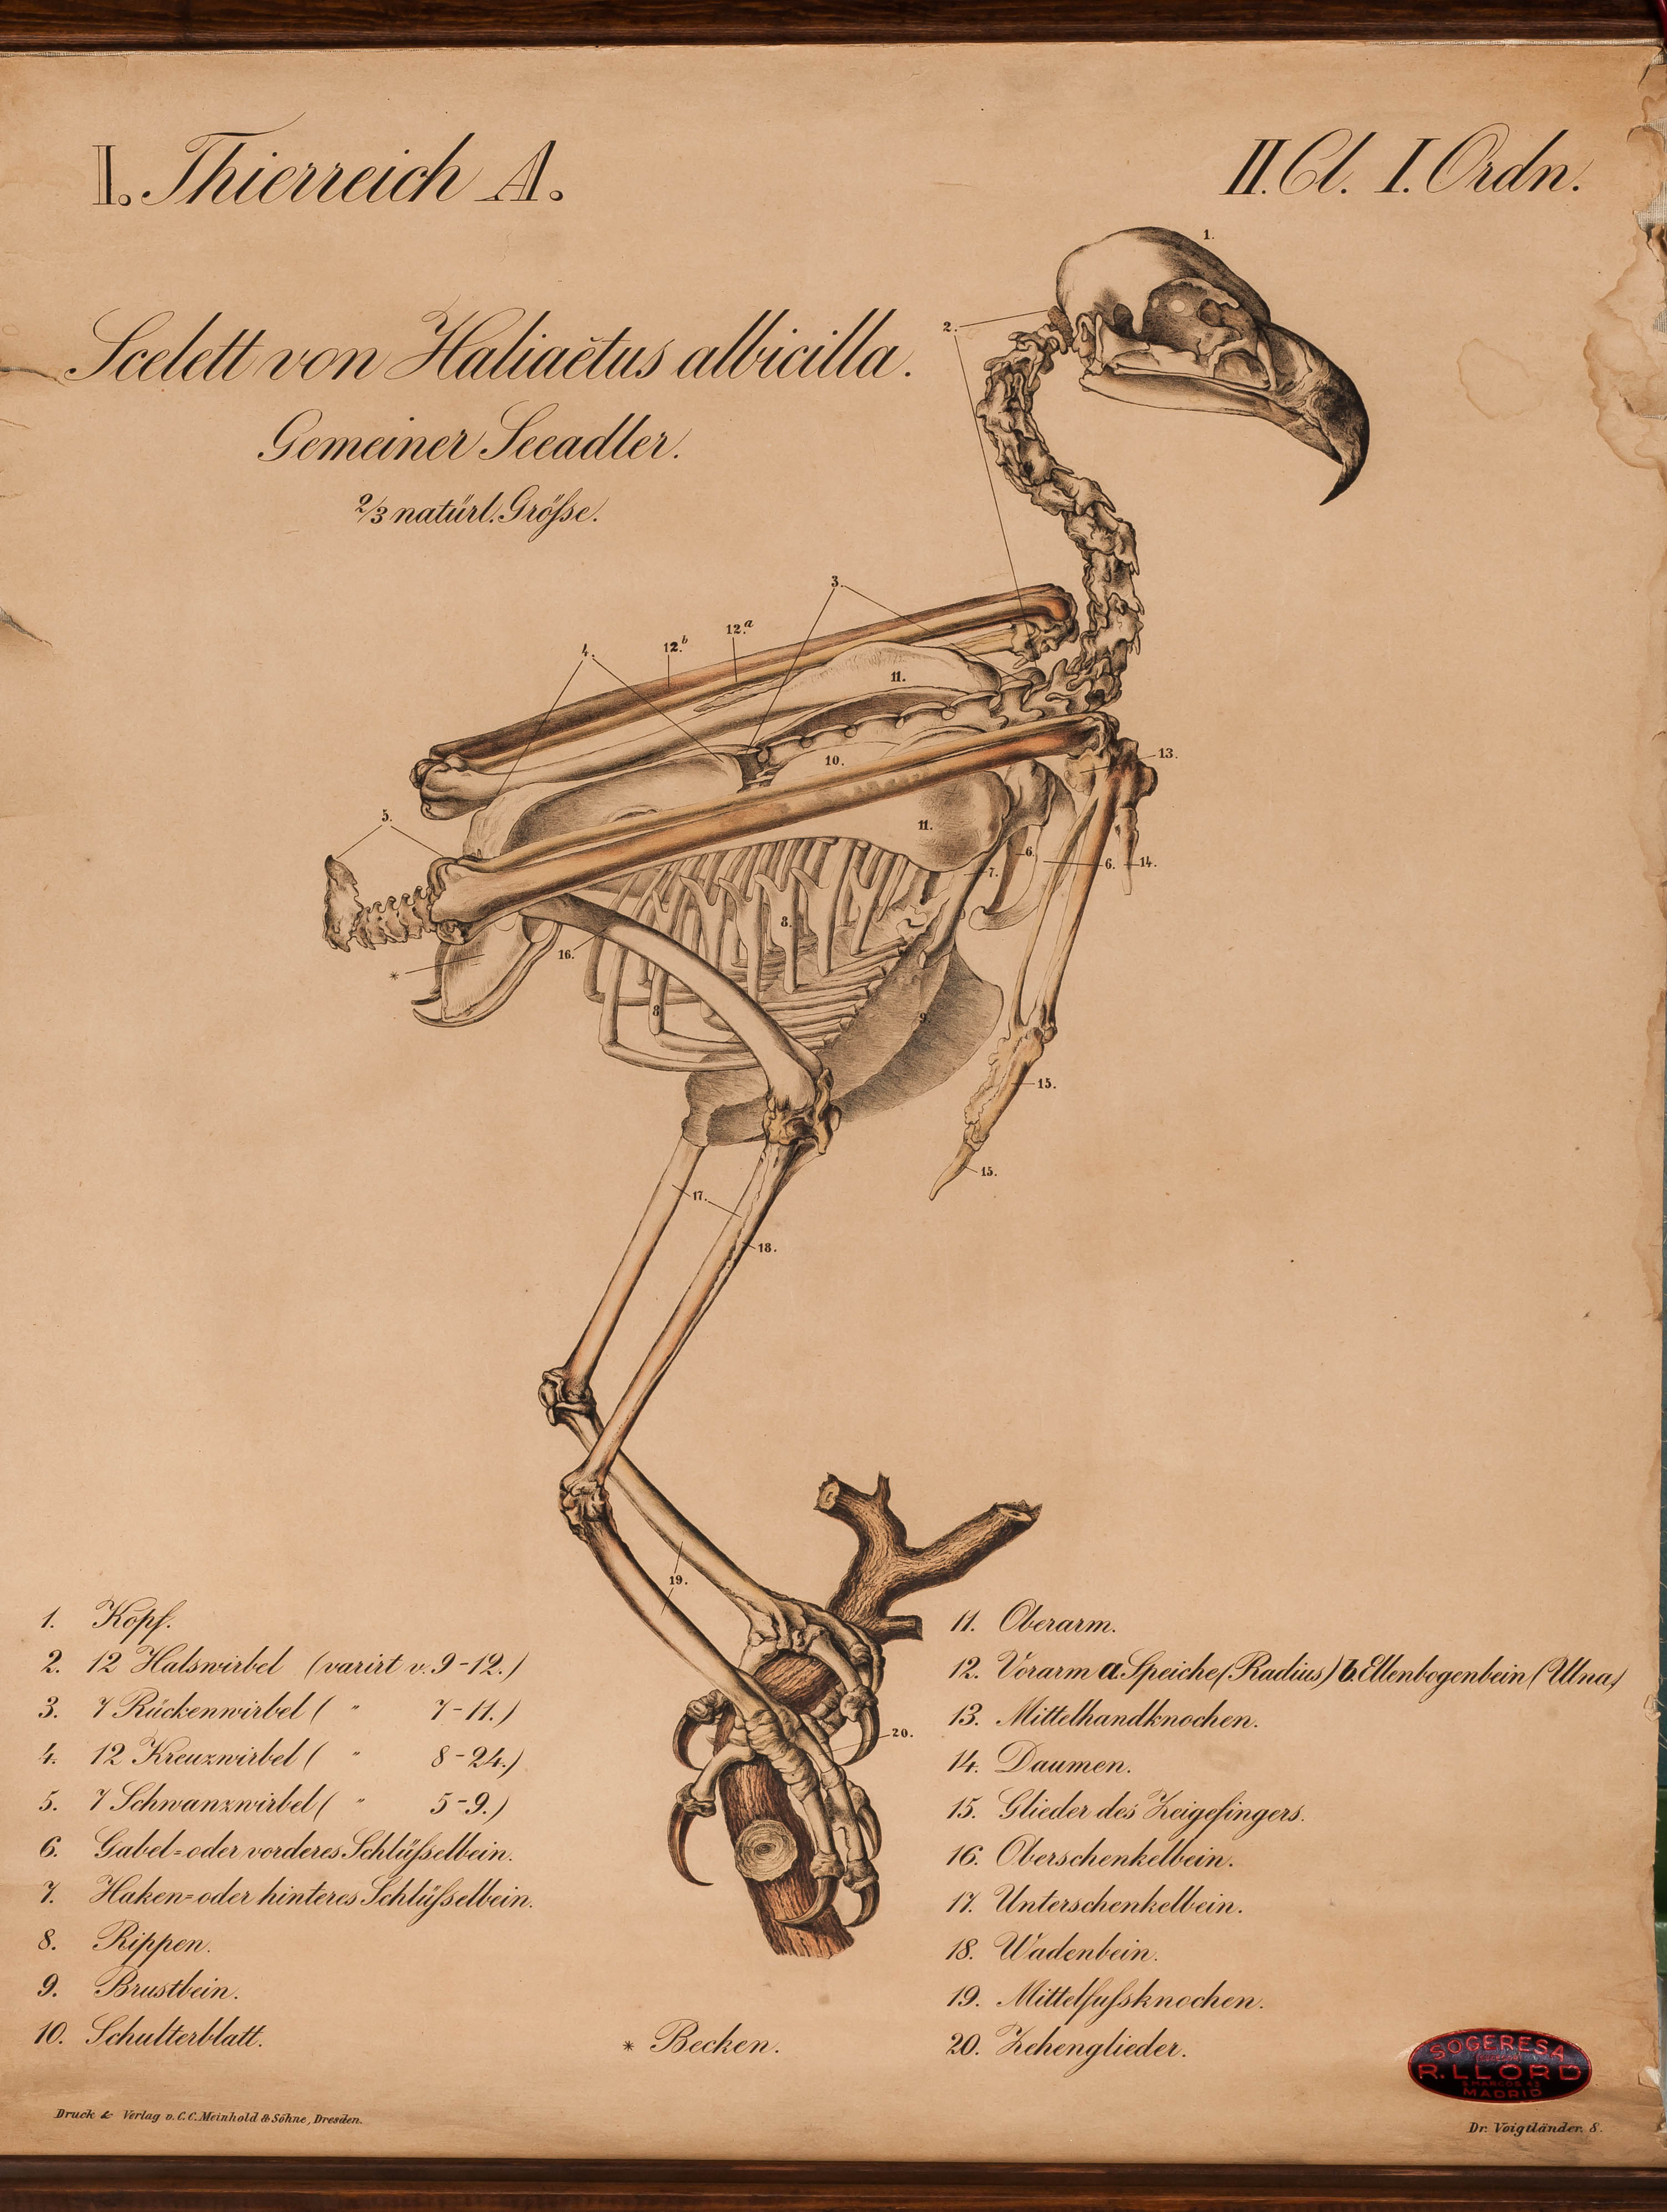 I. Thierreich A.
II. Cl. I. Ordn.
Scelett von Haliaëtus albicilla.
Gemeiner Seeadler.
2/3 natürl. Grösse.
1.
2.
3.
12.b
12.a
4.
11.
10.
13.
5.
11.
6.
6.
14.
7.
8.
16.
*
8
9.
15.
15.
17.
18.
19.
20.
1. Kopf.
2. 12 Halswirbel (varirt v. 9-12.)
3. 7 Rückenwirbel ( " 7-11.)
4. 12 Kreuzwirbel ( " 8-24.)
5. 7 Schwanzwirbel ( " 5-9.)
6. Gabel= oder vorderes Schlüsselbein.
7. Haken= oder hinteres Schlüsselbein.
8. Rippen.
9. Brustbein.
10. Schulterblatt.
* Becken.
11. Oberarm.
12. Vorarm a. Speiche (Radius) b. Ellenbogenbein (Ulna)
13. Mittelhandknochen.
14. Daumen.
15. Glieder des Zeigefingers.
16. Oberschenkelbein.
17. Unterschenkelbein.
18. Wadenbein.
19. Mittelfussknochen.
20. Zehenglieder.
SOGERESA
R. LLORD
MADRID
Druck & Verlag v. C. C. Meinhold & Söhne, Dresden.
Dr. Voigtländer. 8.